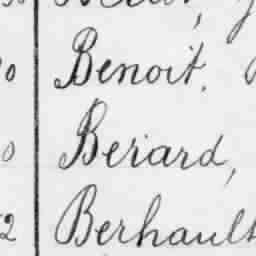 Benoit.
Beriard,
Berhault